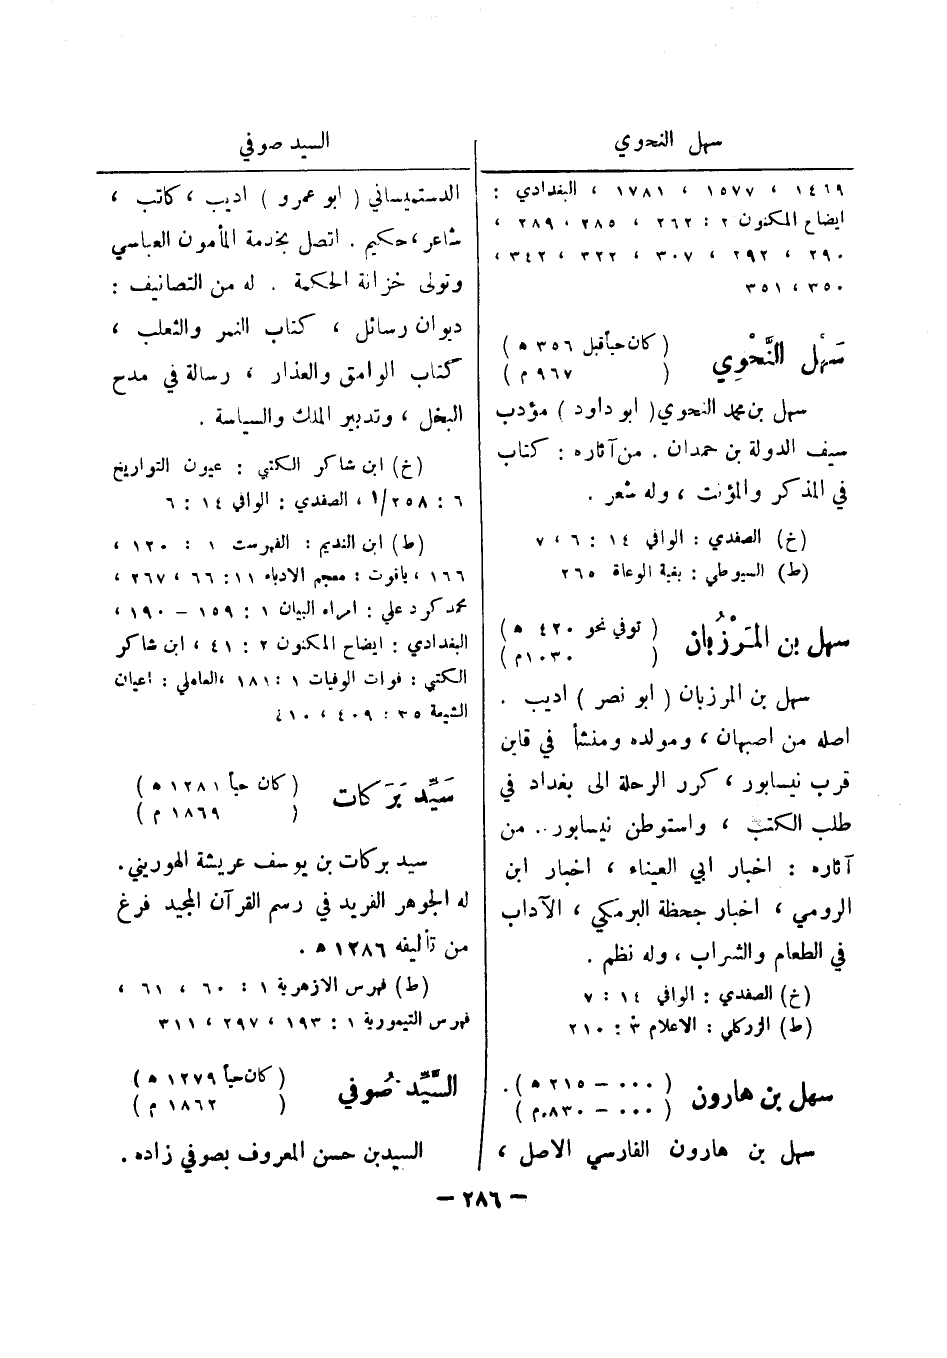 سهل النحوي
السيد صوفي
١٤٦٩ ، ١٥٧٧ ، ١٧٨١ ، البغدادي :
ايضاح المكنون ٢ : ٢٦٢ ، ٢٨٥ ، ٢٨٩ ،
٢٩٠ ، ٢٩٢ ، ٣٠٧ ، ٣٢٢ ، ٣٤٢ ،
٣٥٠ ، ٣٥١
سَهْل النَّحْوِي ( كان حياً قبل ٣٥٦ ه )
( ٩٦٧ م )
سهل بن محمد النحوي ( ابو داود ) مؤدب
سيف الدولة بن حمدان . من آثاره : كتاب
في المذكر والمؤنث ، وله شعر .
(خ) الصفدي : الوافي ١٤ : ٦ ، ٧
(ط) السيوطي : بغية الوعاة ٢٦٥
سهل بن المَرْزُبان ( توفي نحو ٤٢٠ ه )
( ١٠٣٠م )
سهل بن المرزبان ( ابو نصر ) اديب .
اصله من اصبهان ، ومولده ومنشأ في قاين
قرب نيسابور ، كرر الرحلة الى بغداد في
طلب الكتب ، واستوطن نيسابور .. من
آثاره : اخبار ابي العيناء ، اخبار ابن
الرومي ، اخبار جحظة البرمكي ، الآداب
في الطعام والشراب ، وله نظم .
(خ) الصفدي : الوافي ١٤ : ٧
(ط) الزركلي : الاعلام ٣ : ٢١٠
سهل بن هارون ( ٠٠٠ – ٢١٥ ه ) .
( ٠٠٠ – ٨٣٠ م )
سهل بن هارون الفارسي الاصل ،
الدستميساني ( ابو عمرو ) اديب ، كاتب ،
شاعر ، حكيم . اتصل بخدمة المأمون العباسي
وتولى خزانة الحكمة . له من التصانيف :
ديوان رسائل ، كتاب النمر والثعلب ،
كتاب الوامق والعذار ، رسالة في مدح
البخل ، وتدبير الملك والسياسة .
(خ) ابن شاكر الكتبي : عيون التواريخ
٦ : ٢٥٨/١ ، الصفدي : الوافي ١٤ : ٦
(ط) ابن النديم : الفهرست ١ : ١٢٠ ،
١٦٦ ، ياقوت : معجم الادباء ١١ : ٦٦ ، ٢٦٧ ،
محمد كرد علي : امراء البيان ١ : ١٥٩ – ١٩٠ ،
البغدادي : ايضاح المكنون ٢ : ٤١ ، ابن شاكر
الكتبي : فوات الوفيات ١ : ١٨١ ، العاملي : اعيان
الشيعة ٣٥ : ٤٠٩ ، ٤١٠
سَيِّد بَرَكات ( كان حياً ١٢٨١ ه )
( ١٨٦٩ م )
سيد بركات بن يوسف عريشة الهوريني .
له الجوهر الفريد في رسم القرآن المجيد فرغ
من تأليفه ١٢٨٦ ه .
(ط) فهرس الازهرية ١ : ٦٠ ، ٦١ ،
فهرس التيمورية ١ : ١٩٣ ، ٢٩٧ ، ٣١١
السَّيِّد صُوفي ( كان حياً ١٢٧٩ ه )
( ١٨٦٢ م )
السيد بن حسن المعروف بصوفي زاده .
– ٢٨٦ –